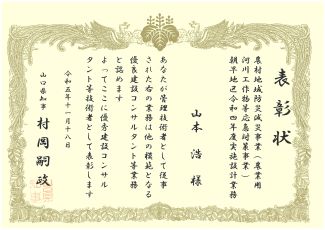 表彰状
農村地域防災減災事業(農業用
河川工作物等応急対策事業)
朝早地区令和四年度実施設計業務
山本 浩 様
あなたが管理技術者として従事
された右の業務は他の模範となる
優良建設コンサルタント等業務
と認めます
よってここに優秀建設コンサル
タント等技術者として表彰します
令和五年十一月十八日
山口県知事 村岡嗣政